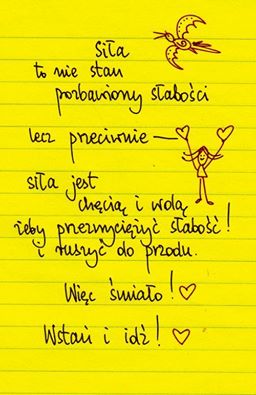 Siła
to nie stan
pozbawiony słabości
lecz przeciwnie —
siła jest
chęcią i wolą
żeby przezwyciężyć słabość!
i ruszyć do przodu.
Więc śmiało!
Wstań i idź!